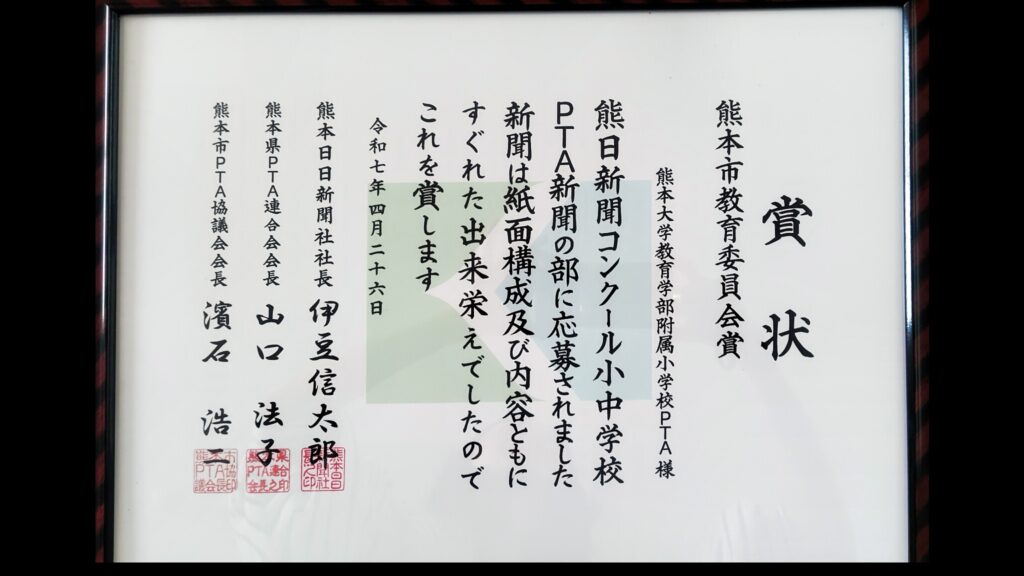 賞状
熊本市教育委員会賞
熊本大学教育学部附属小学校PTA様
熊日新聞コンクール小中学校
PTA新聞の部に応募されました
新聞は紙面構成及び内容ともに
すぐれた出来栄えでしたので
これを賞します
令和七年四月二十六日
熊本日日新聞社社長 伊豆信太郎
熊本県PTA連合会会長 山口 法子
熊本市PTA協議会会長 濱石 浩二